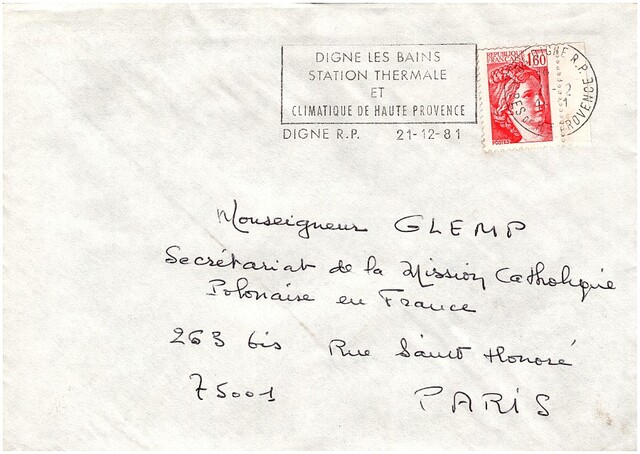 DIGNE LES BAINS
STATION THERMALE
ET
CLIMATIQUE DE HAUTE PROVENCE
DIGNE R.P. 21-12-81
REPUBLIQUE
FRANÇAISE
1,60
POSTES
DIGNE R.P.
PROVENCE
Monseigneur GLEMP
Secrétariat de la Mission Catholique
Polonaise en France
263 bis Rue Saint Honoré
75001 PARIS